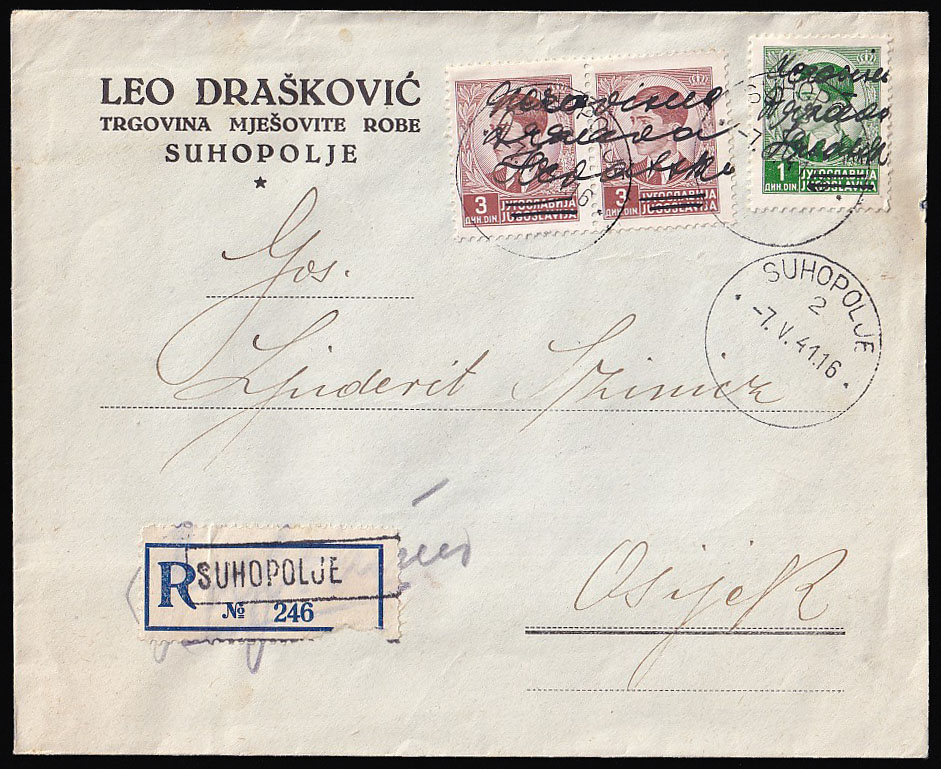 LEO DRAŠKOVIĆ
TRGOVINA MJEŠOVITE ROBE
SUHOPOLJE
Nezavisna
Država
Hrvatska
3
ДИН. DIN.
ЈУГОСЛАВИЈА
JUGOSLAVIJA
3
ДИН. DIN.
ЈУГОСЛАВИЈА
JUGOSLAVIJA
Nezavisna
Država
Hrvatska
1
ДИН. DIN.
ЈУГОСЛАВИЈА
JUGOSLAVIJA
SUHOPOLJE
2
-7. V. 41.16
Gos.
Ljudevit Szinicz
R SUHOPOLJE
№ 246
Osijek